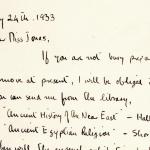 y 24th. 1933
Miss Jones,
If you are not busy
move at present, I will be obliged
can send me from the library,
"Ancient History of the Near East" - Hall
"Ancient Egyptian Religion" -
will the